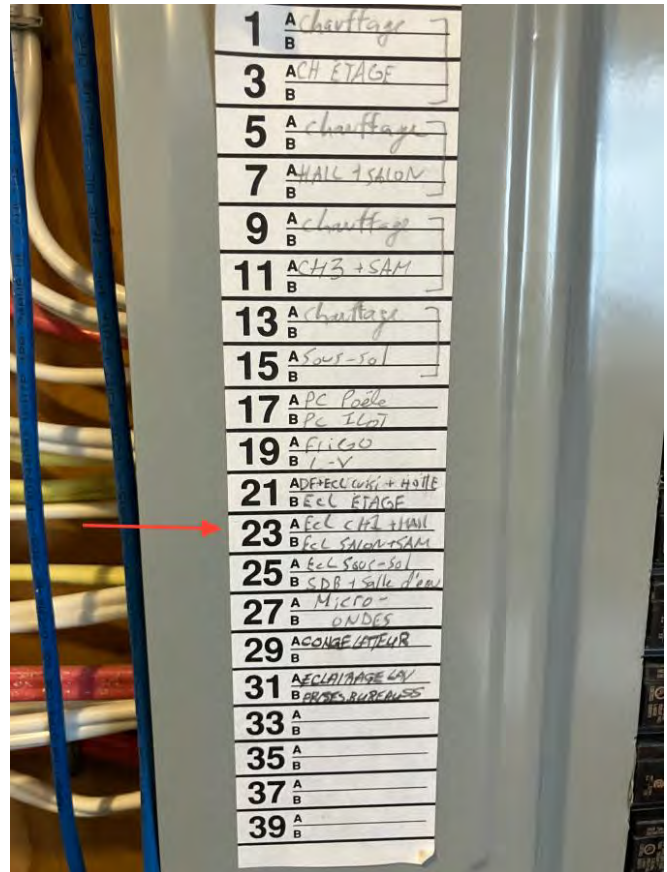 1 A chauffage
B
3 A CH ETAGE
B
5 A chauffage
B
7 A HALL + SALON
B
9 A chauffage
B
11 A CH3 + SAM
B
13 A chauffage
B
15 A Sous-sol
B
17 A PC Poêle
B PC ILOT
19 A FRIGO
B L-V
21 A DF+Ecl cuisi + Hotte
B Ecl ETAGE
23 A Ecl CH1 + HALL
B Ecl SALON+SAM
25 A Ecl Sous-Sol
B SDB + Salle d'eau
27 A Micro-
B ONDES
29 A CONGELATEUR
B
31 A ECLAIRAGE LAV
B PRISES BUREAU SS
33 A
B
35 A
B
37 A
B
39 A
B